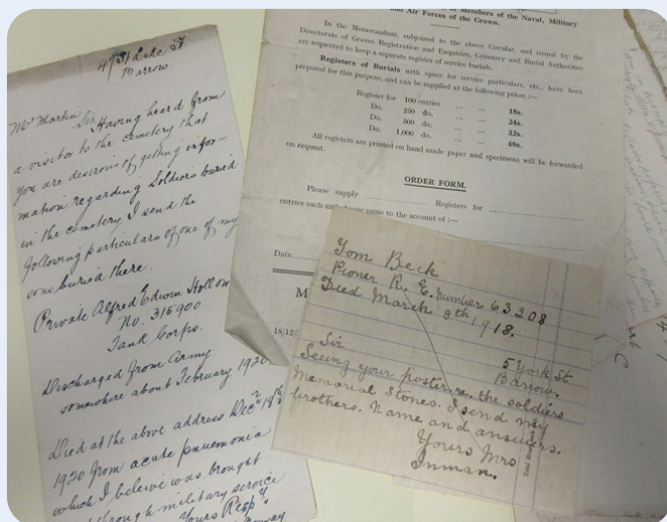 Duke St
Barrow.
Mr Martin
Sir Having heard from
a visitor to the cemetery that
you are desirous of getting infor-
mation regarding Soldiers buried
in the cemetery I send the
following particulars of one of my
sons buried there.
Private Alfred Edwin
No. 315900
Tank Corps.
Discharged from Army
somewhere about February 1920
Died at the above address Dec 19th
1920 from acute pnuemonia
which I beleive was brought
through military service
Yours Resp
Members of the Naval, Military
and Air Forces of the Crown.
In the Memorandum, subjoined to the above Circular, and issued by the
Directorate of Graves Registration and Enquiries, Cemetery and Burial Authorities
are requested to keep a separate register of service burials.
Registers of Burials with space for service particulars, etc., have been
prepared for this purpose, and can be supplied at the following prices :—
Register for 100 entries ... ... 18s.
Do. 250 do. ... ... 24s.
Do. 500 do. ... ... 32s.
Do. 1,000 do. ... ... 48s.
All registers are printed on hand made paper and specimens will be forwarded
on request.
ORDER FORM.
Please supply Registers for
entries each and charge same to the account of :—
Date
M
18/12/
Tom Beck
Pioner R. E. Number 63208
Died March 8th 1918.
5 York St
Barrow.
Sir
Seeing your poster re. the soldiers
Memorial Stones. I send my
brothers. Name and answers.
Yours Mrs
Inman.